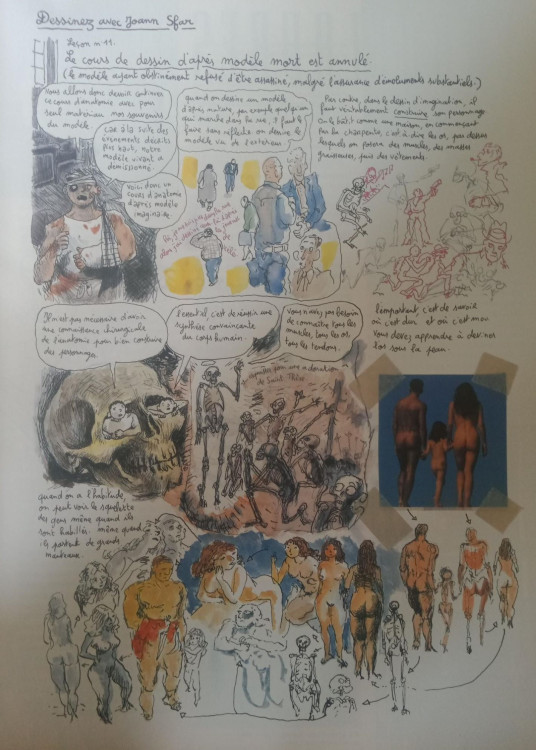 Dessinez avec Joann Sfar
Leson n°11.
Le cours de dessin d'après modèle mort est annulé.
(le modèle ayant obstinément refusé d'être assassiné, malgré l'assurance d'émoluments substantiels.)
Vous allons donc devoir continuer
ce cours d'anatomie avec pour
seul matériau nos souvenirs
du modèle.
car à la suite des
événements décrits
plus haut, notre
modèle vivant a
démissionné.
Voici donc un
cours d'anatomie
d'après modèle
imaginaire
quand on dessine un modèle
d'après nature, par exemple quelqu'un
qui marche dans la rue, il faut le
faire sans réfléchir. on dessine le
modèle vu de l'extérieur
Par contre, dans le dessin d'imagination, il
faut véritablement construire son personnage.
On le bâtit comme une maison, en commençant
par la charpente, c'est à dire les os, par dessus
lesquels on posera des muscles, des masses
graisseuses, puis des vêtements.
Il n'est pas nécessaire d'avoir
une connaissance chirurgicale
de l'anatomie pour bien construire
des personnages.
l'essentiel, c'est de réussir une
synthèse convaincante
du corps humain.
Vous n'avez pas besoin
de connaître tous les
muscles, tous les os,
tous les tendons.
l'important c'est de savoir
où c'est dur et où c'est mou
Vous devez apprendre à deviner
l'os sous la peau.
squelettes pour une adoration
de Saint
quand on a l'habitude,
on peut voir le squelette
des gens même quand ils
sont habillés. même quand
ils portent de grands
manteaux.